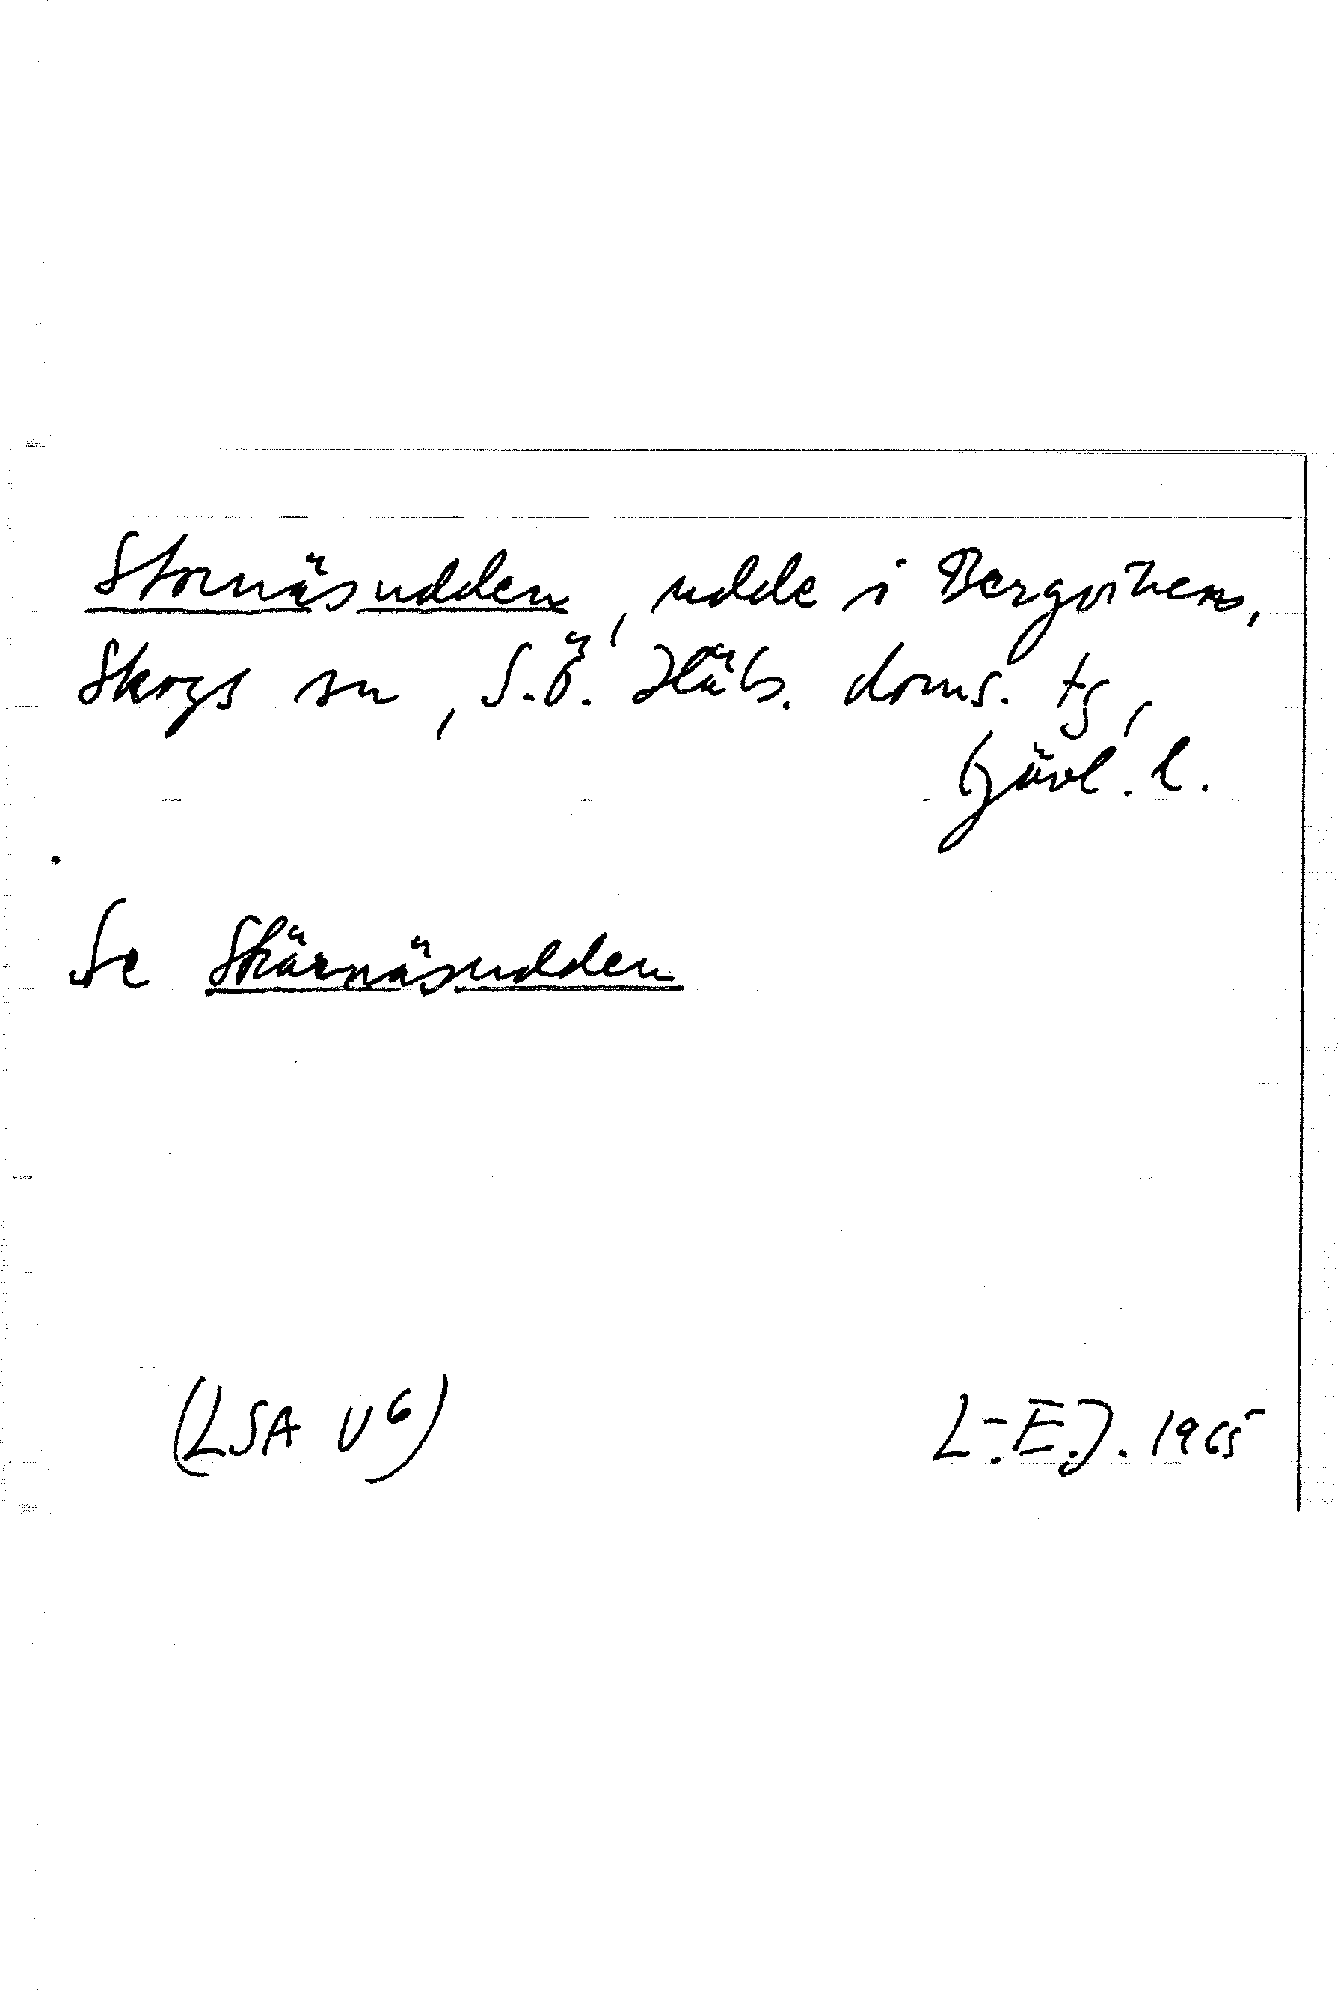 Stornäsudden, udde i Bergviken,
Skogs sn, S.Ö. Häls. doms. tg,
Gävl. l.
Se Skärnäsudden
(LSA U6)
L-E.J. 1965